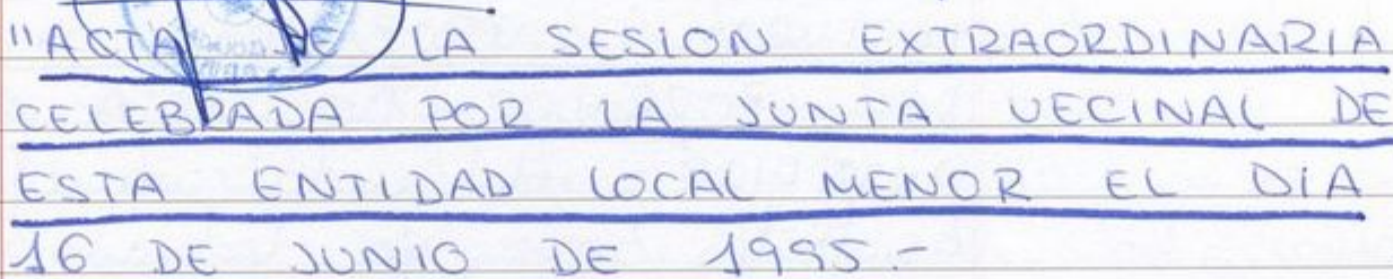 "ACTA DE LA SESION EXTRAORDINARIA
CELEBRADA POR LA JUNTA VECINAL DE
ESTA ENTIDAD LOCAL MENOR EL DIA
16 DE JUNIO DE 1995.-